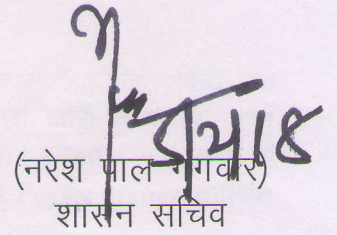 (नरेश पाल गंगवार)
शासन सचिव